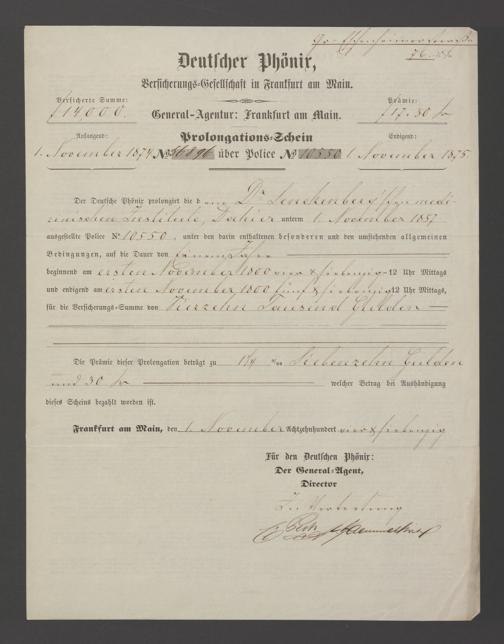 Gr. Eschenheimerstrasse
76
Deutscher Phönix,
Versicherungs-Gesellschaft in Frankfurt am Main.
Versicherte Summe: Prämie:
f 14,000. General-Agentur: Frankfurt am Main. f 17. 30 kr
Prolongations-Schein
Anfangend: Endigend:
1. November 1874 № über Police № 10550 1. November 1875
Der Deutsche Phönix prolongirt die dem Dr. Senckenberg'schen medi-
zinischen Institute, Dahier unterm 1. November 1857
ausgestellte Police № 10550, unter den darin enthaltenen besonderen und den umstehenden allgemeinen
Bedingungen, auf die Dauer von einem Jahre
beginnend am ersten November 1800 vier & siebenzig 12 Uhr Mittags
und endigend am ersten November 1800 fünf & siebenzig 12 Uhr Mittags,
für die Versicherungs-Summe von Vierzehn Tausend Gulden
Die Prämie dieser Prolongation beträgt zu 1¼ ‰ Siebenzehn Gulden
und 30 kr welcher Betrag bei Aushändigung
dieses Scheins bezahlt worden ist.
Frankfurt am Main, den 1. November Achtzehnhundert vier & siebenzig
Für den Deutschen Phönix:
Der General-Agent,
Director
In Vertretung